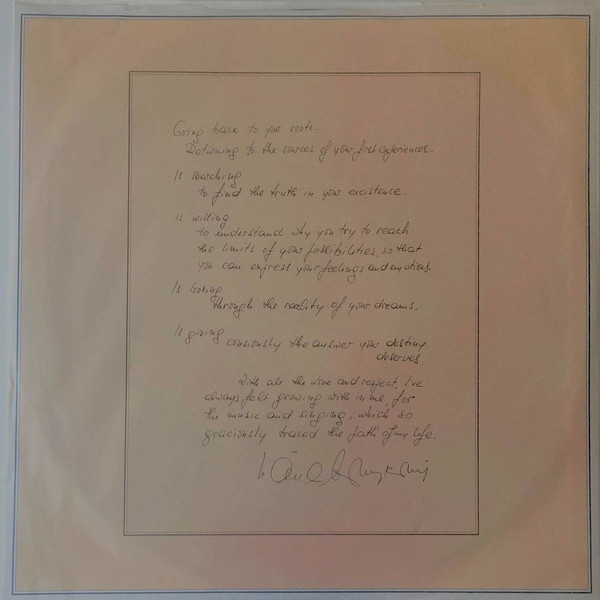 Going back to your roots.
Returning to the sources of your first experiences.
Is searching
to find the truth in your existance.
Is willing
to understand why you try to reach
the limits of your possibilities, so that
you can express your feelings and emotions.
Is looking
through the reality of your dreams.
Is giving
consiously the answer your destiny
deserves.
With all the love and respect, I've
always felt growing with in me, for
the music and singing, which so
graciously traced the path of my life.